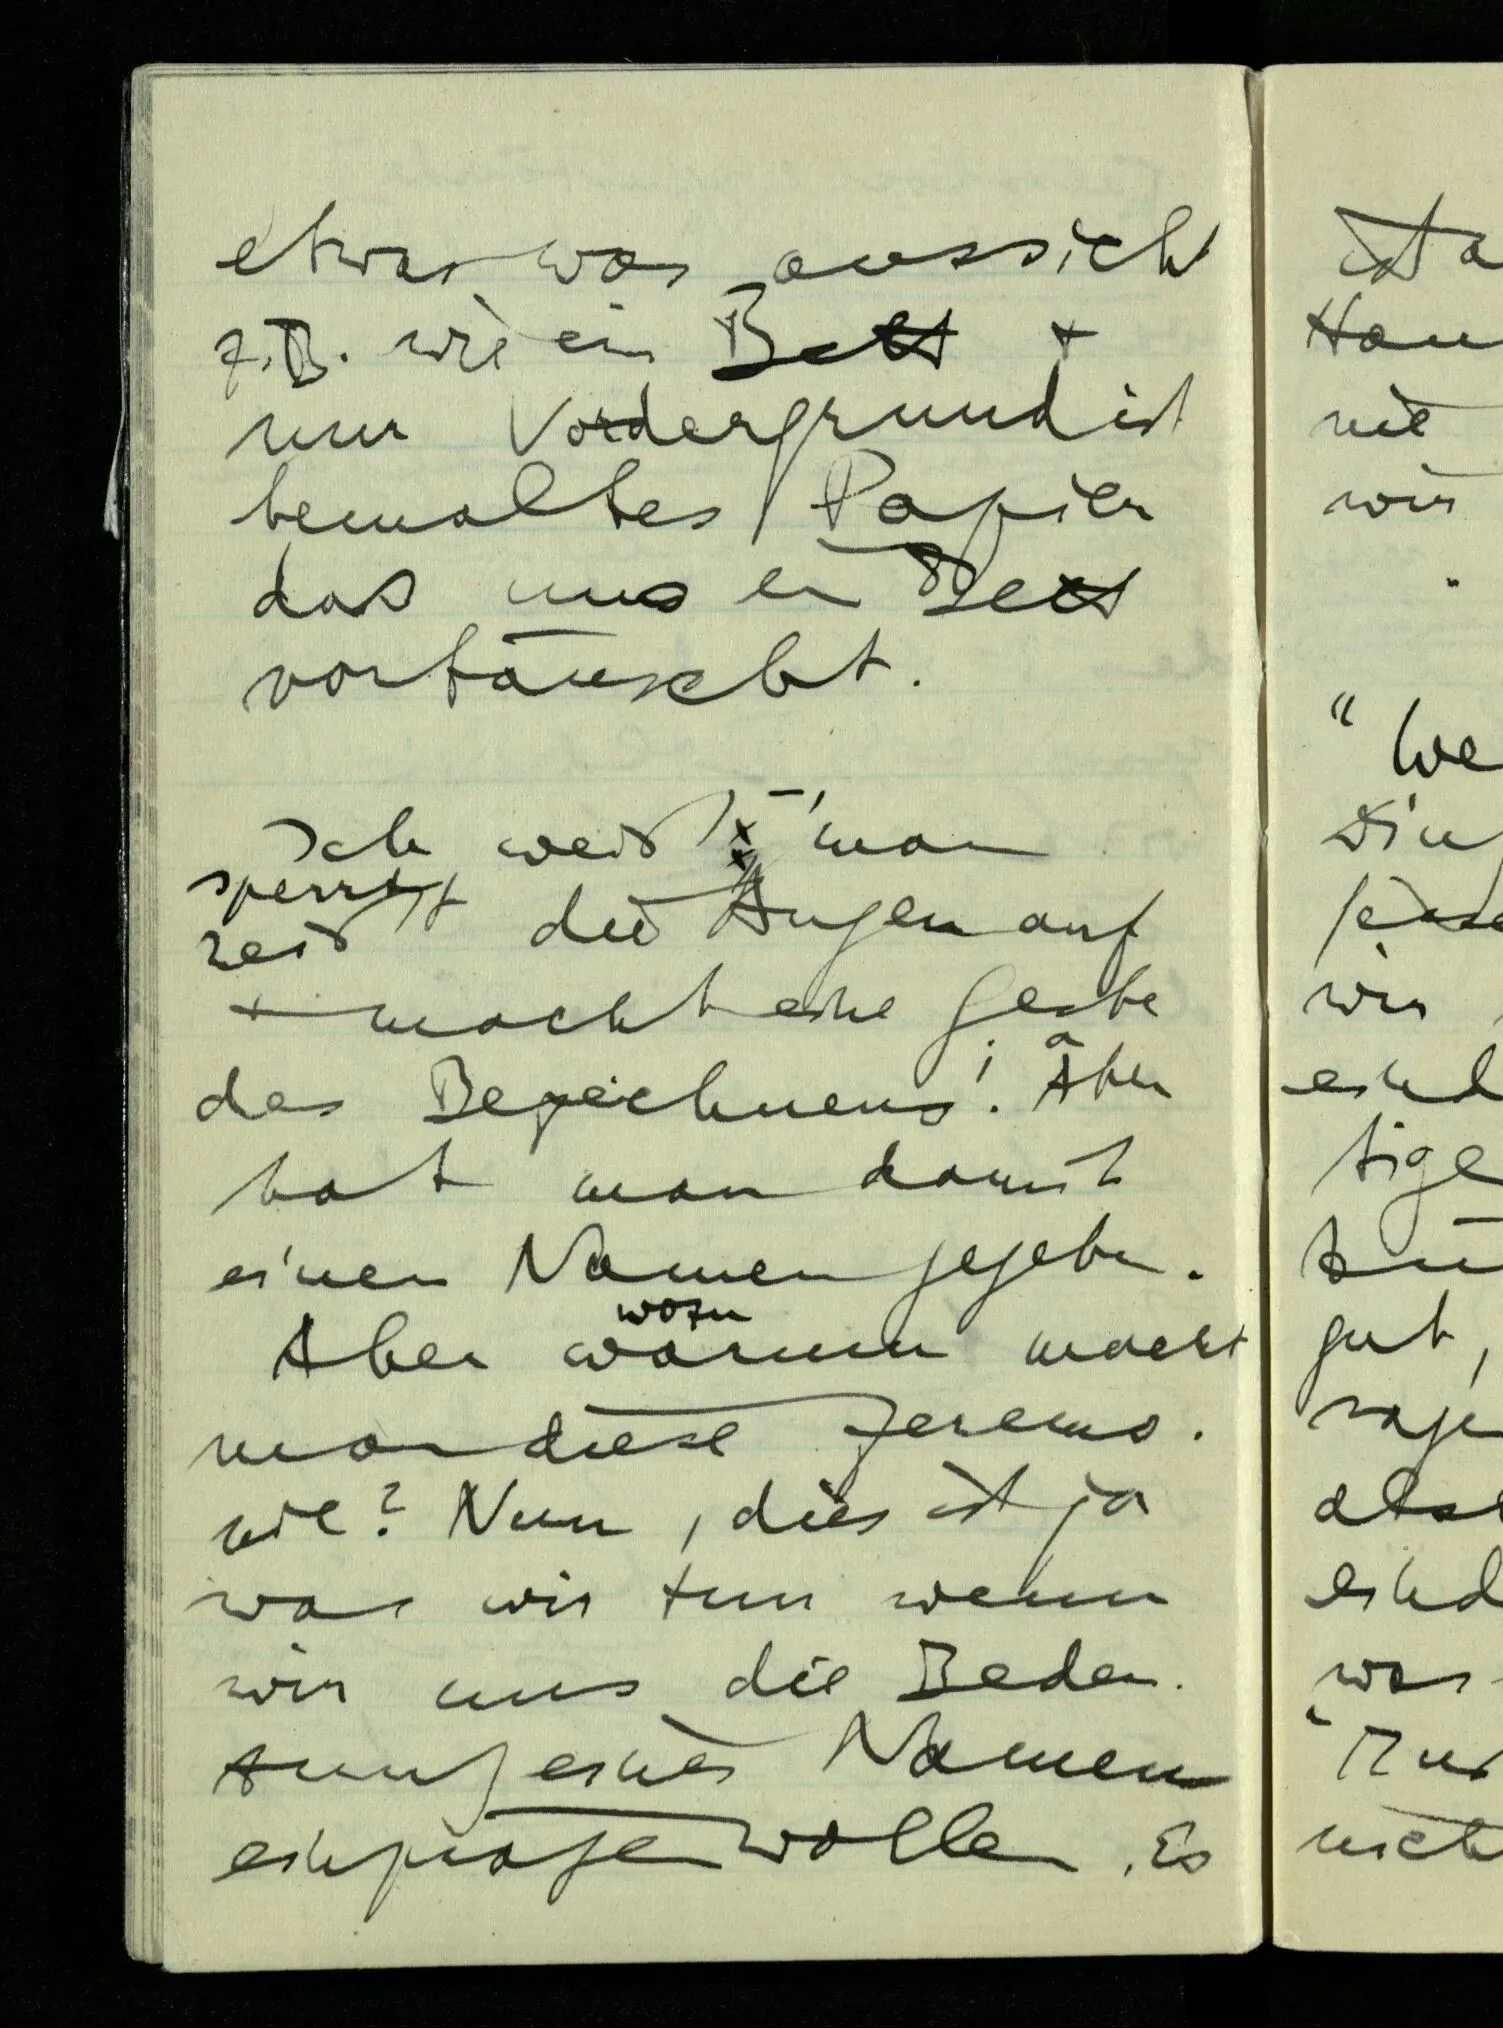 etwas was aussieht
z.B. wie ein Bett +
nur Vordergrund ist
bemaltes Papier
das uns ein Bett
vortäuscht.
Ich weiß – , man
sperrt
reißt die Augen auf
+ macht eine Geste
des Bezeichnens! Aber
hat man damit
einen Namen gegeben.
wozu
Aber warum macht
man diese Zeremo-
nie? Nun, dies ist ja
was wir tun wenn
wir uns die Bedeu-
tung eines Namen
einprägen wollen. Es
ist
nie
wir
"We
wir
tige
gut,
was